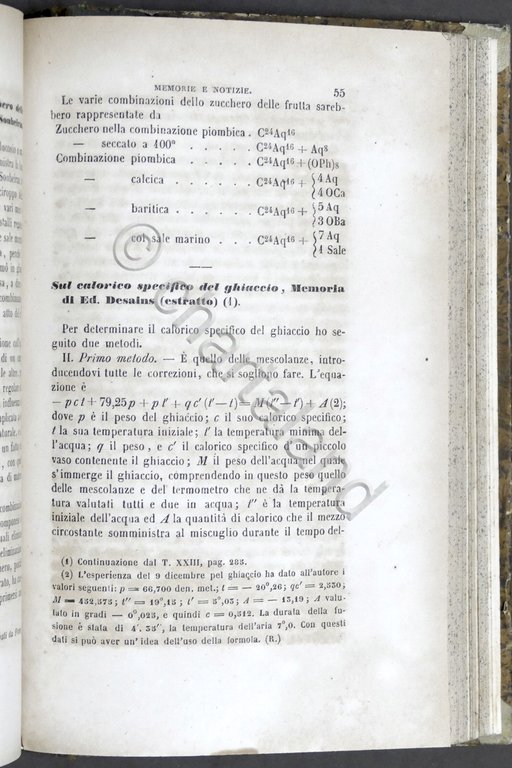 MEMORIE E NOTIZIE. 55
Le varie combinazioni dello zucchero delle frutta sareb-
bero rappresentate da
Zucchero nella combinazione piombica . C²⁴Aq¹⁶
— seccato a 100° . . . . . C²⁴Aq¹⁶ + Aq⁸
Combinazione piombica . . . . . C²⁴Aq¹⁶ + (OPh)s
— calcica . . . . . . C²⁴Aq¹⁶ + { 4 Aq
4 OCa
— baritica . . . . . . C²⁴Aq¹⁶ + { 5 Aq
3 OBa
— col sale marino . . . C²⁴Aq¹⁶ + { 7 Aq
1 Sale
Sul calorico specifico del ghiaccio, Memoria
di Ed. Desains (estratto) (1).
Per determinare il calorico specifico del ghiaccio ho se-
guito due metodi.
II. Primo metodo. — È quello delle mescolanze, intro-
ducendovi tutte le correzioni, che si sogliono fare. L'equa-
zione è
— pct + 79,25p + pt' + qc' (t'—t) = M (t''—t') + A (2);
dove p è il peso del ghiaccio; c il suo calorico specifico;
t la sua temperatura iniziale; t' la temperatura minima del-
l'acqua; q il peso, e c' il calorico specifico d'un piccolo
vaso contenente il ghiaccio; M il peso dell'acqua nel quale
s'immerge il ghiaccio, comprendendo in questo peso quello
delle mescolanze e del termometro che ne dà la tempera-
tura valutati tutti e due in acqua; t'' è la temperatura
iniziale dell'acqua ed A la quantità di calorico che il mezzo
circostante somministra al miscuglio durante il tempo del-
(1) Continuazione dal T. XXIII, pag. 283.
(2) L'esperienza del 9 dicembre pel ghiaccio ha dato all'autore i
valori seguenti: p = 66,700 den. met.; t = — 20°,26; qc' = 2,330;
M = 432,373; t'' = 19°,13; t' = 5°,03; A = — 13,19; A valu-
tato in gradi — 0°,025, e quindi c = 0,512. La durata della fu-
sione è stata di 4'. 35', la temperatura dell'aria 7°,0. Con questi
dati si può aver un' idea dell'uso della formola. (R.)
© chartaland